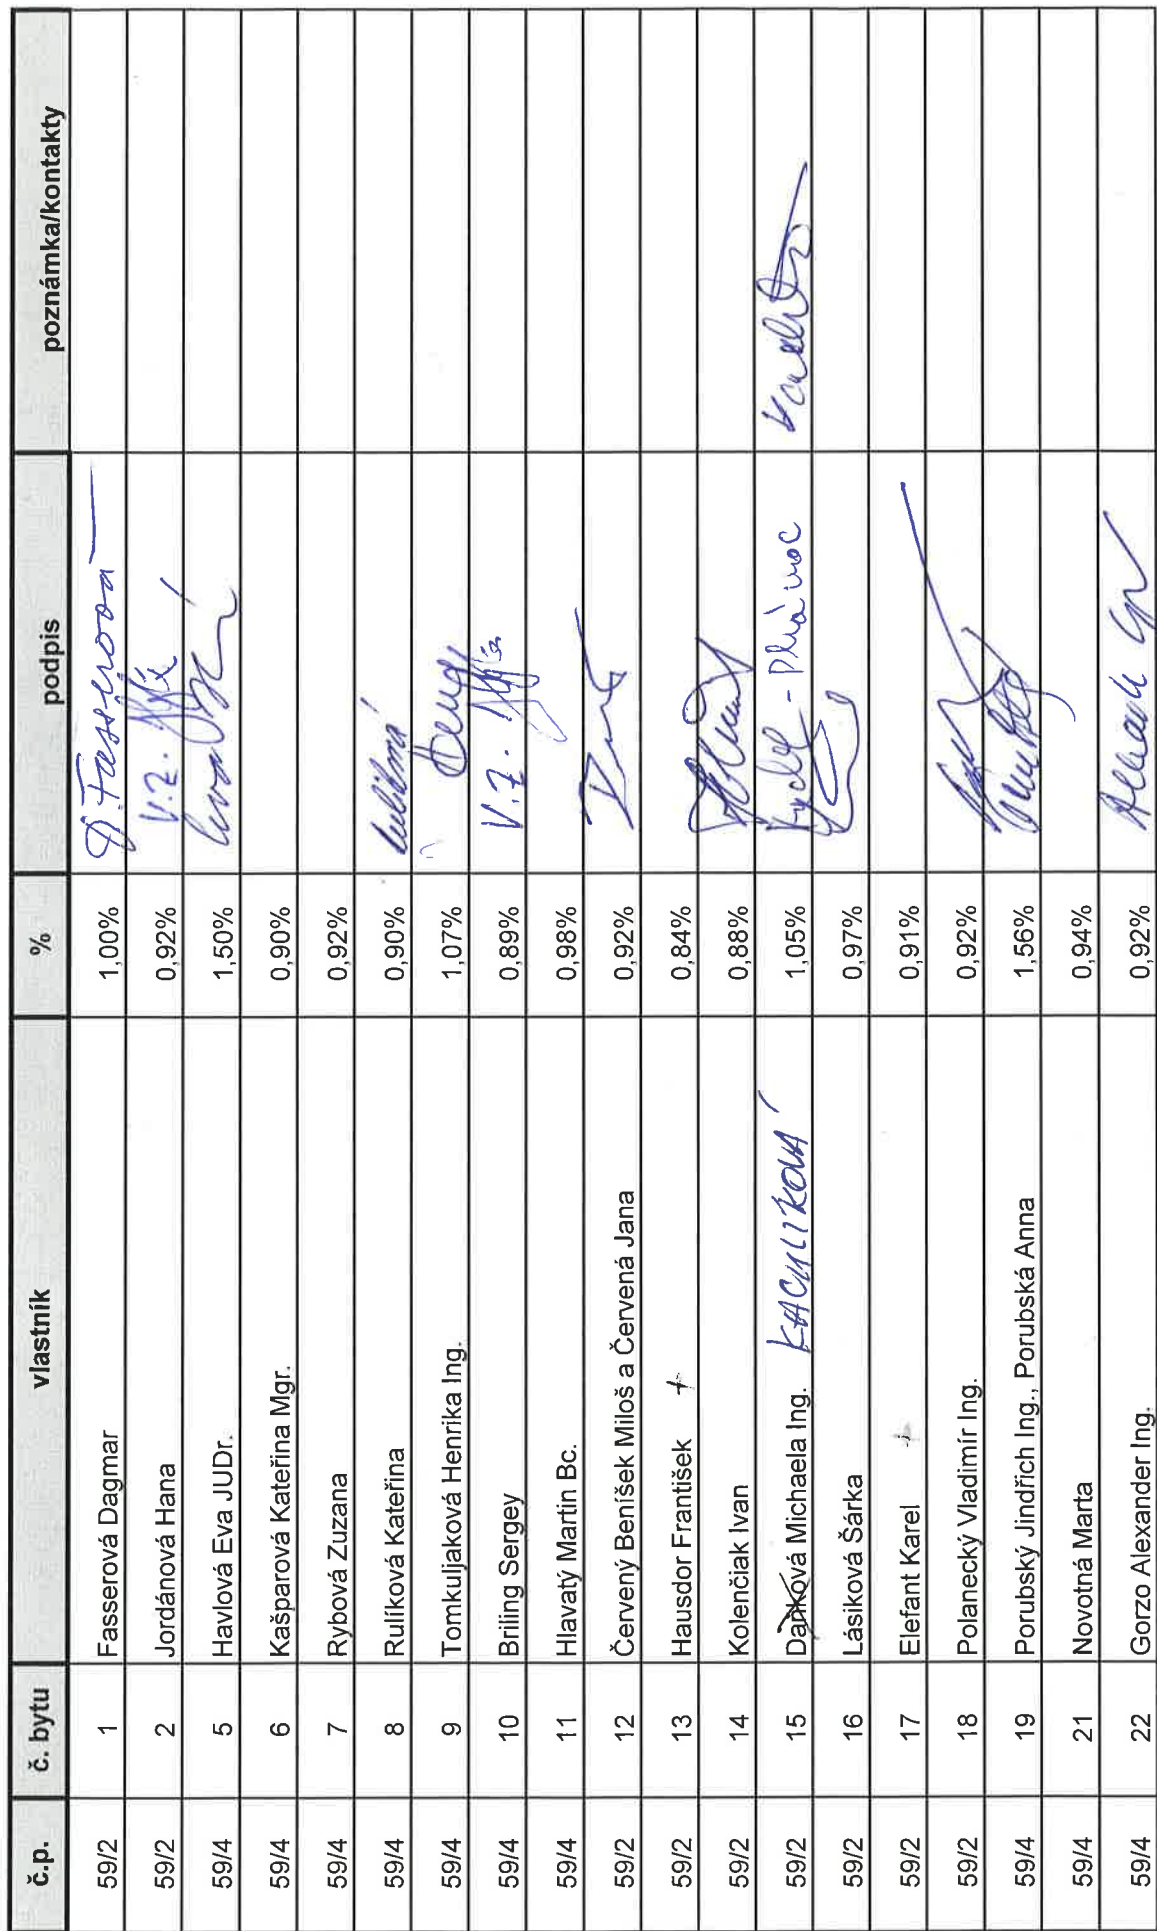 č.p. č. bytu vlastník % podpis poznámka/kontakty
59/2 1 Fasserová Dagmar 1,00% D. Fasserová
59/2 2 Jordánová Hana 0,92% V.Z.
59/4 5 Havlová Eva JUDr. 1,50%
59/4 6 Kašparová Kateřina Mgr. 0,90%
59/4 7 Rybová Zuzana 0,92%
59/4 8 Rulíková Kateřina 0,90%
59/4 9 Tomkuljaková Henrika Ing. 1,07%
59/4 10 Briling Sergey 0,89% V.Z.
59/4 11 Hlavatý Martin Bc. 0,98%
59/2 12 Červený Beníšek Miloš a Červená Jana 0,92%
59/2 13 Hausdor František + 0,84%
59/2 14 Kolenčiak Ivan 0,88%
59/2 15 Daňková Michaela Ing. KACULÍKOVÁ 1,05%
59/2 16 Lásiková Šárka 0,97%
59/2 17 Elefant Karel 0,91%
59/2 18 Polanecký Vladimír Ing. 0,92%
59/4 19 Porubský Jindřich Ing., Porubská Anna 1,56%
59/4 21 Novotná Marta 0,94%
59/4 22 Gorzo Alexander Ing. 0,92%